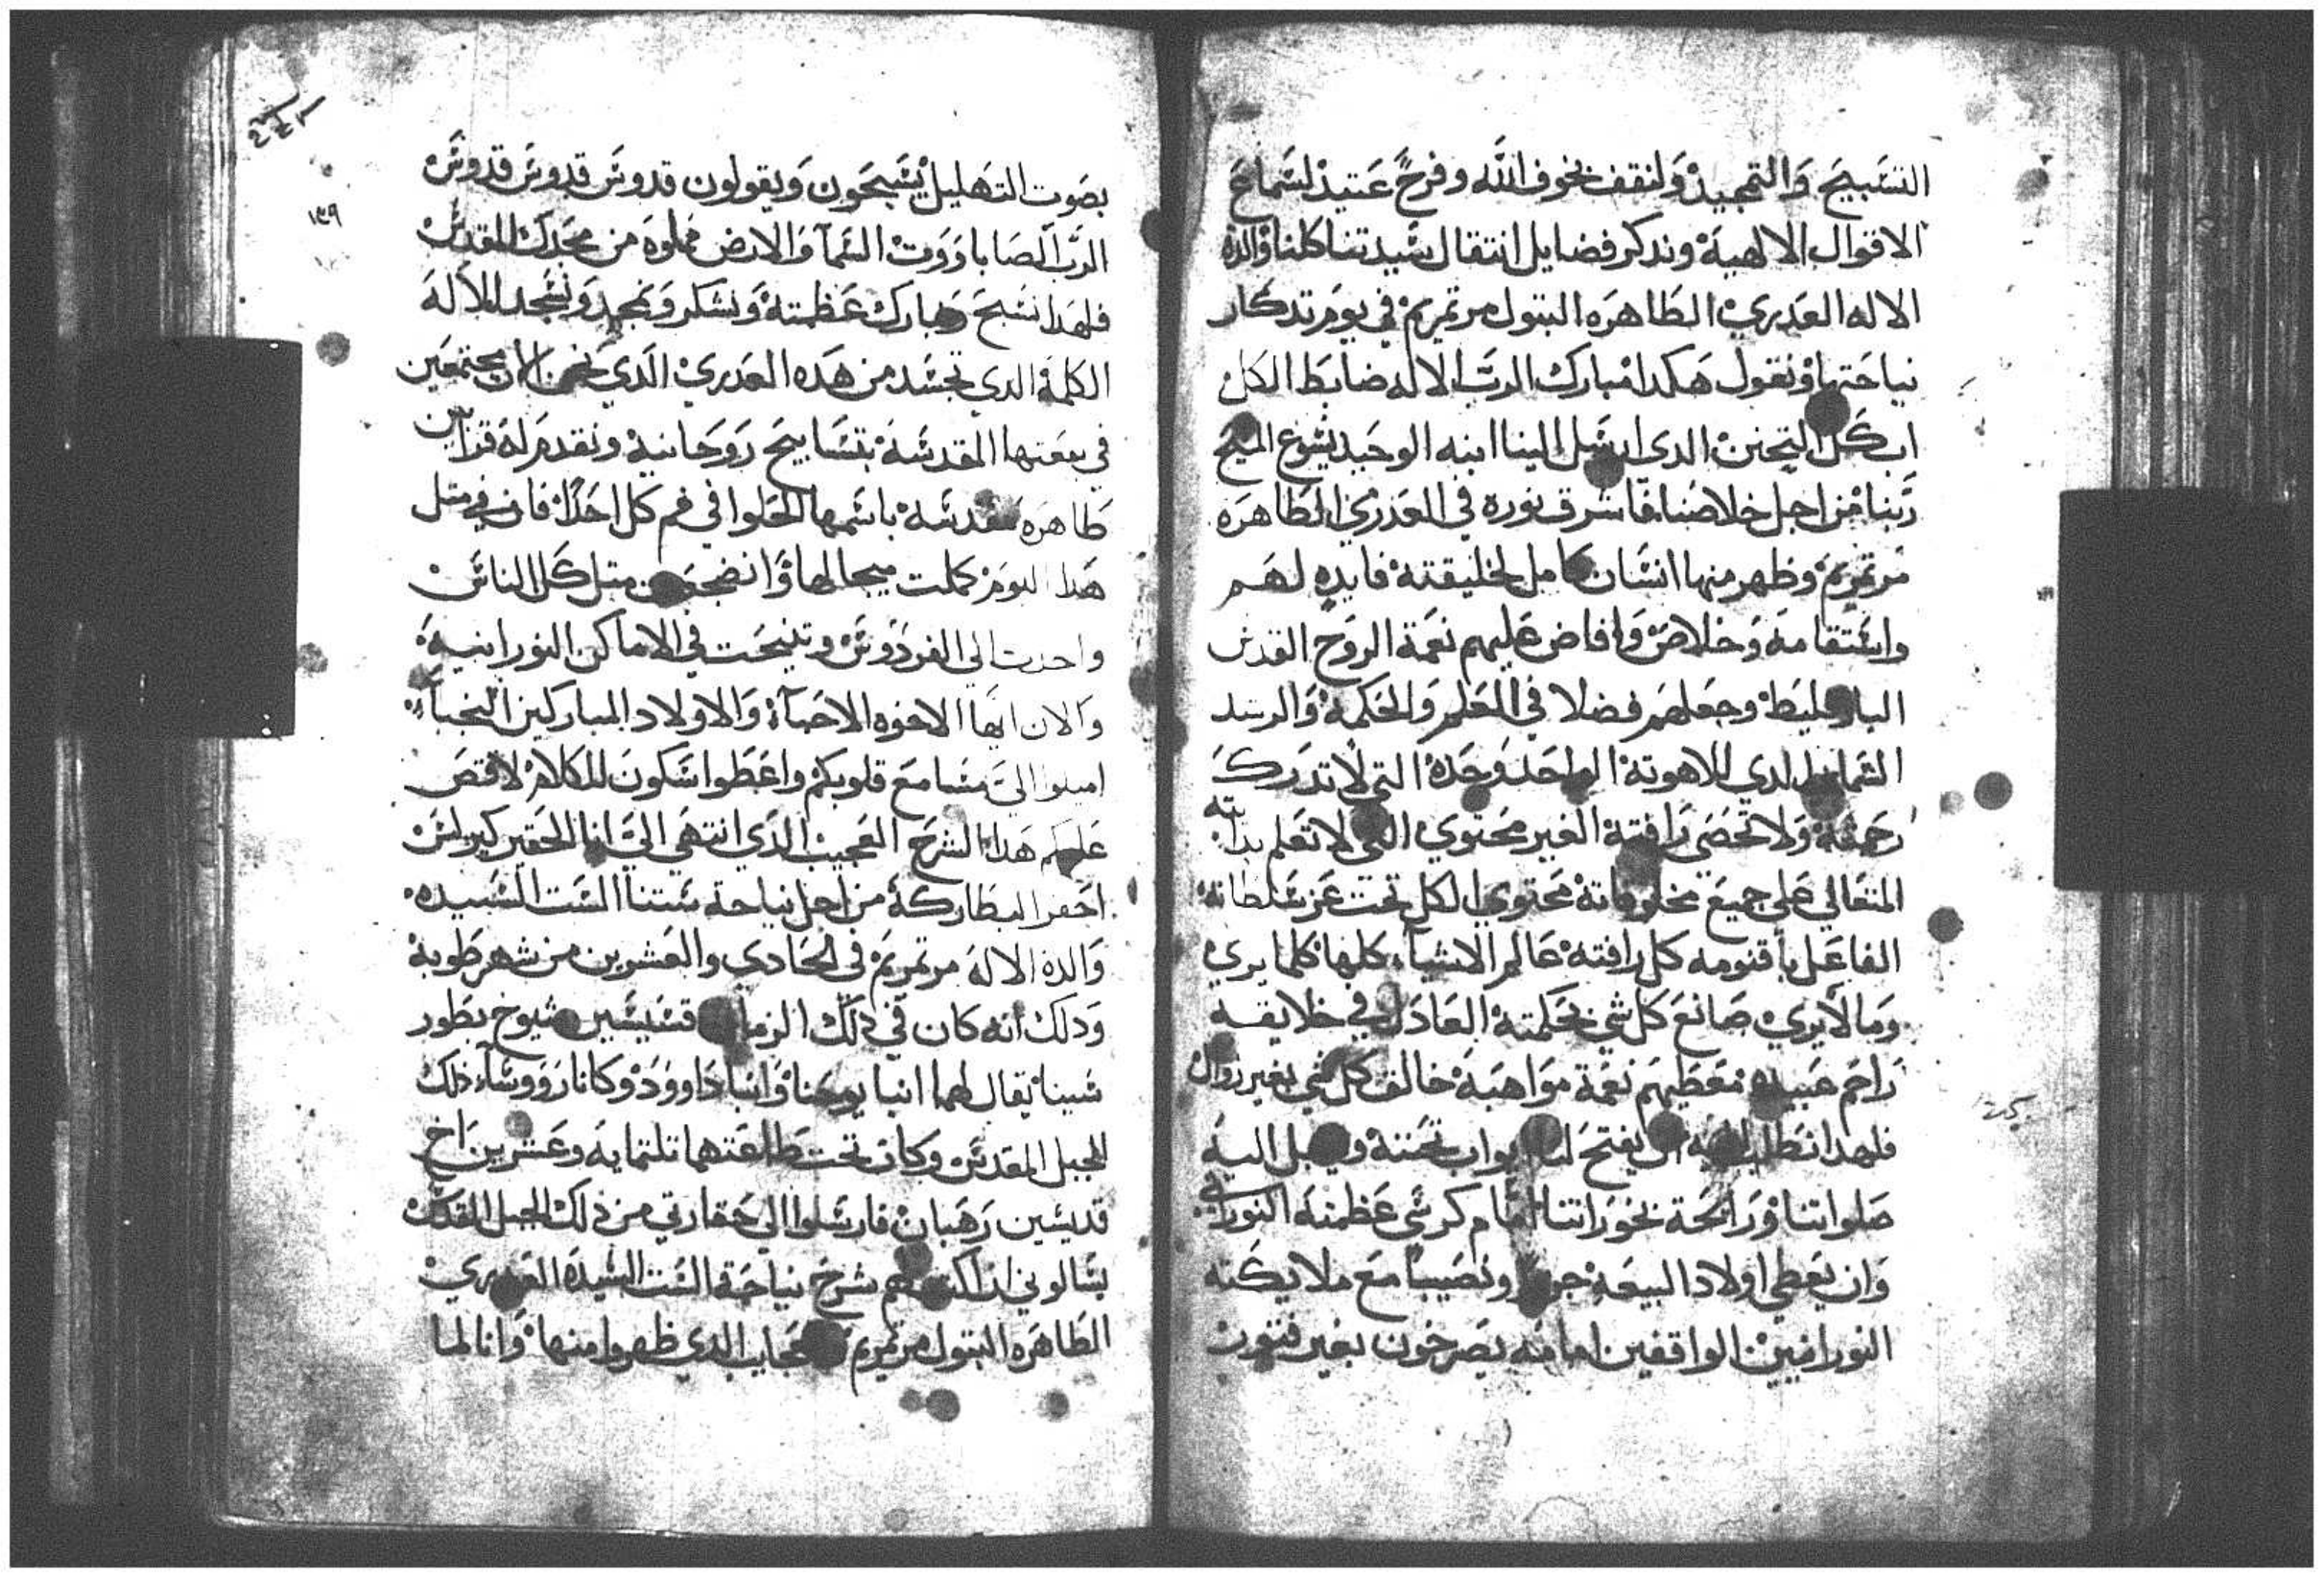 التسبيح والتمجيد ولنقف بخوف الله وفرح عتيد لسماع
الاقوال الالهية وندكر فضايل انتقال سيدتنا كلنا والدة
الاله العدري الطاهره البتول مرتمريم في يوم تدكار
نياحتها ونقول هكدا مبارك الرب الاله ضابط الكل
اب كل التحنن الدي ارسل الينا ابنه الوحيد يسوع المسيح
ربنا من اجل خلاصنا فاشرق نوره في العدري الطاهره
مرتمريم وظهر منها انسان كامل لخليقته فايده لهم
واستقامه وخلاص وافاض عليهم نعمة الروح القدس
البارقليط وجعلهم فضلا في العلم والحكمة والرشد
الشمايل لدي اللاهوتة الواحد وحده التي لا تدرك
رحمته ولا تحصي رافتة الغير محتوي التي لا تعلم بدايته
المتعالي علي جميع مخلوقاتة محتوي الكل تحت عز سلطانة
الفاعل باقنومه كل رافتة عالم الاشياء كلها كلما يري
وما لا يري صانع كل شي بحكمتة العادل في خلايقه
راحم عبيده معطيهم نعمة مواهبة خالق كل شي بغير زوال
فلهدا نطلب اليه ان يفتح لنا ابواب تحننة ويقبل اليه
صلواتنا ورايحة بخوراتنا امام كرسي عظمته النوراني
وان يعطي اولاد البيعة ونصيبا مع ملايكته
النورانيين الواقفين امامه يصرخون بغير فتور
١٣٩
بصوت التهليل يسبحون ويقولون قدوس قدوس قدوس
الرب الصاباووت السما والارض مملوه من مجدك المقدس
فلهدا نسبح ونبارك عظمتة ونشكر ونمجد ونسجد للاله
الكلمة الدي تجسد من هده العدري الدي نحن الان مجتمعين
في بيعتها المقدسة بتسابيح روحانية ونقدم له قرابين
طاهره مقدسة باسمها الحلوا في فم كل احد لان في متل
هدا اليوم كملت ميجالها وانضجعت متل كل الناس
واخدت الي الفردوس وتنيحت في الاماكن النورانية
والان ايها الاخوه الاحباء والاولاد المباركين النجباء
اميلوا الي مسامع قلوبكم واعطوا سكون للكلام لاقص
عليكم هدا الشرح العجيب الدي انتهي الي انا الحقير كيرلس
احقر البطاركة من اجل نياحة ستنا الست السيده
والدة الاله مرتمريم في الحادي والعشرين من شهر طوبة
ودلك انه كان في دلك الزمان قسيسين شيوخ بطور
سينا يقال لهما انبا يوحنا وانبا داوود وكانا رووساء دلك
الجبل المقدس وكان تحت طاعتهما تلتمايه وعشرين اخ
قديسين رهبان فارسلوا الي حقارتي من دلك الجبل المقدس
يسالوني ان اكتب لهم شرح نياحة الست السيده العدري
الطاهره البتول مرتمريم عجايب الدي ظهروا منها وانا لما